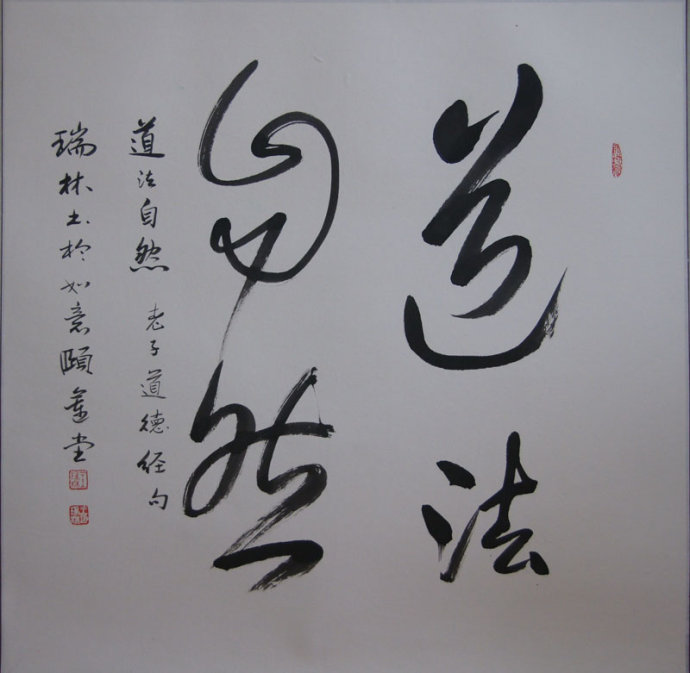 道法
自然
道法自然 老子道德经句
瑞林书于如意颐莲堂